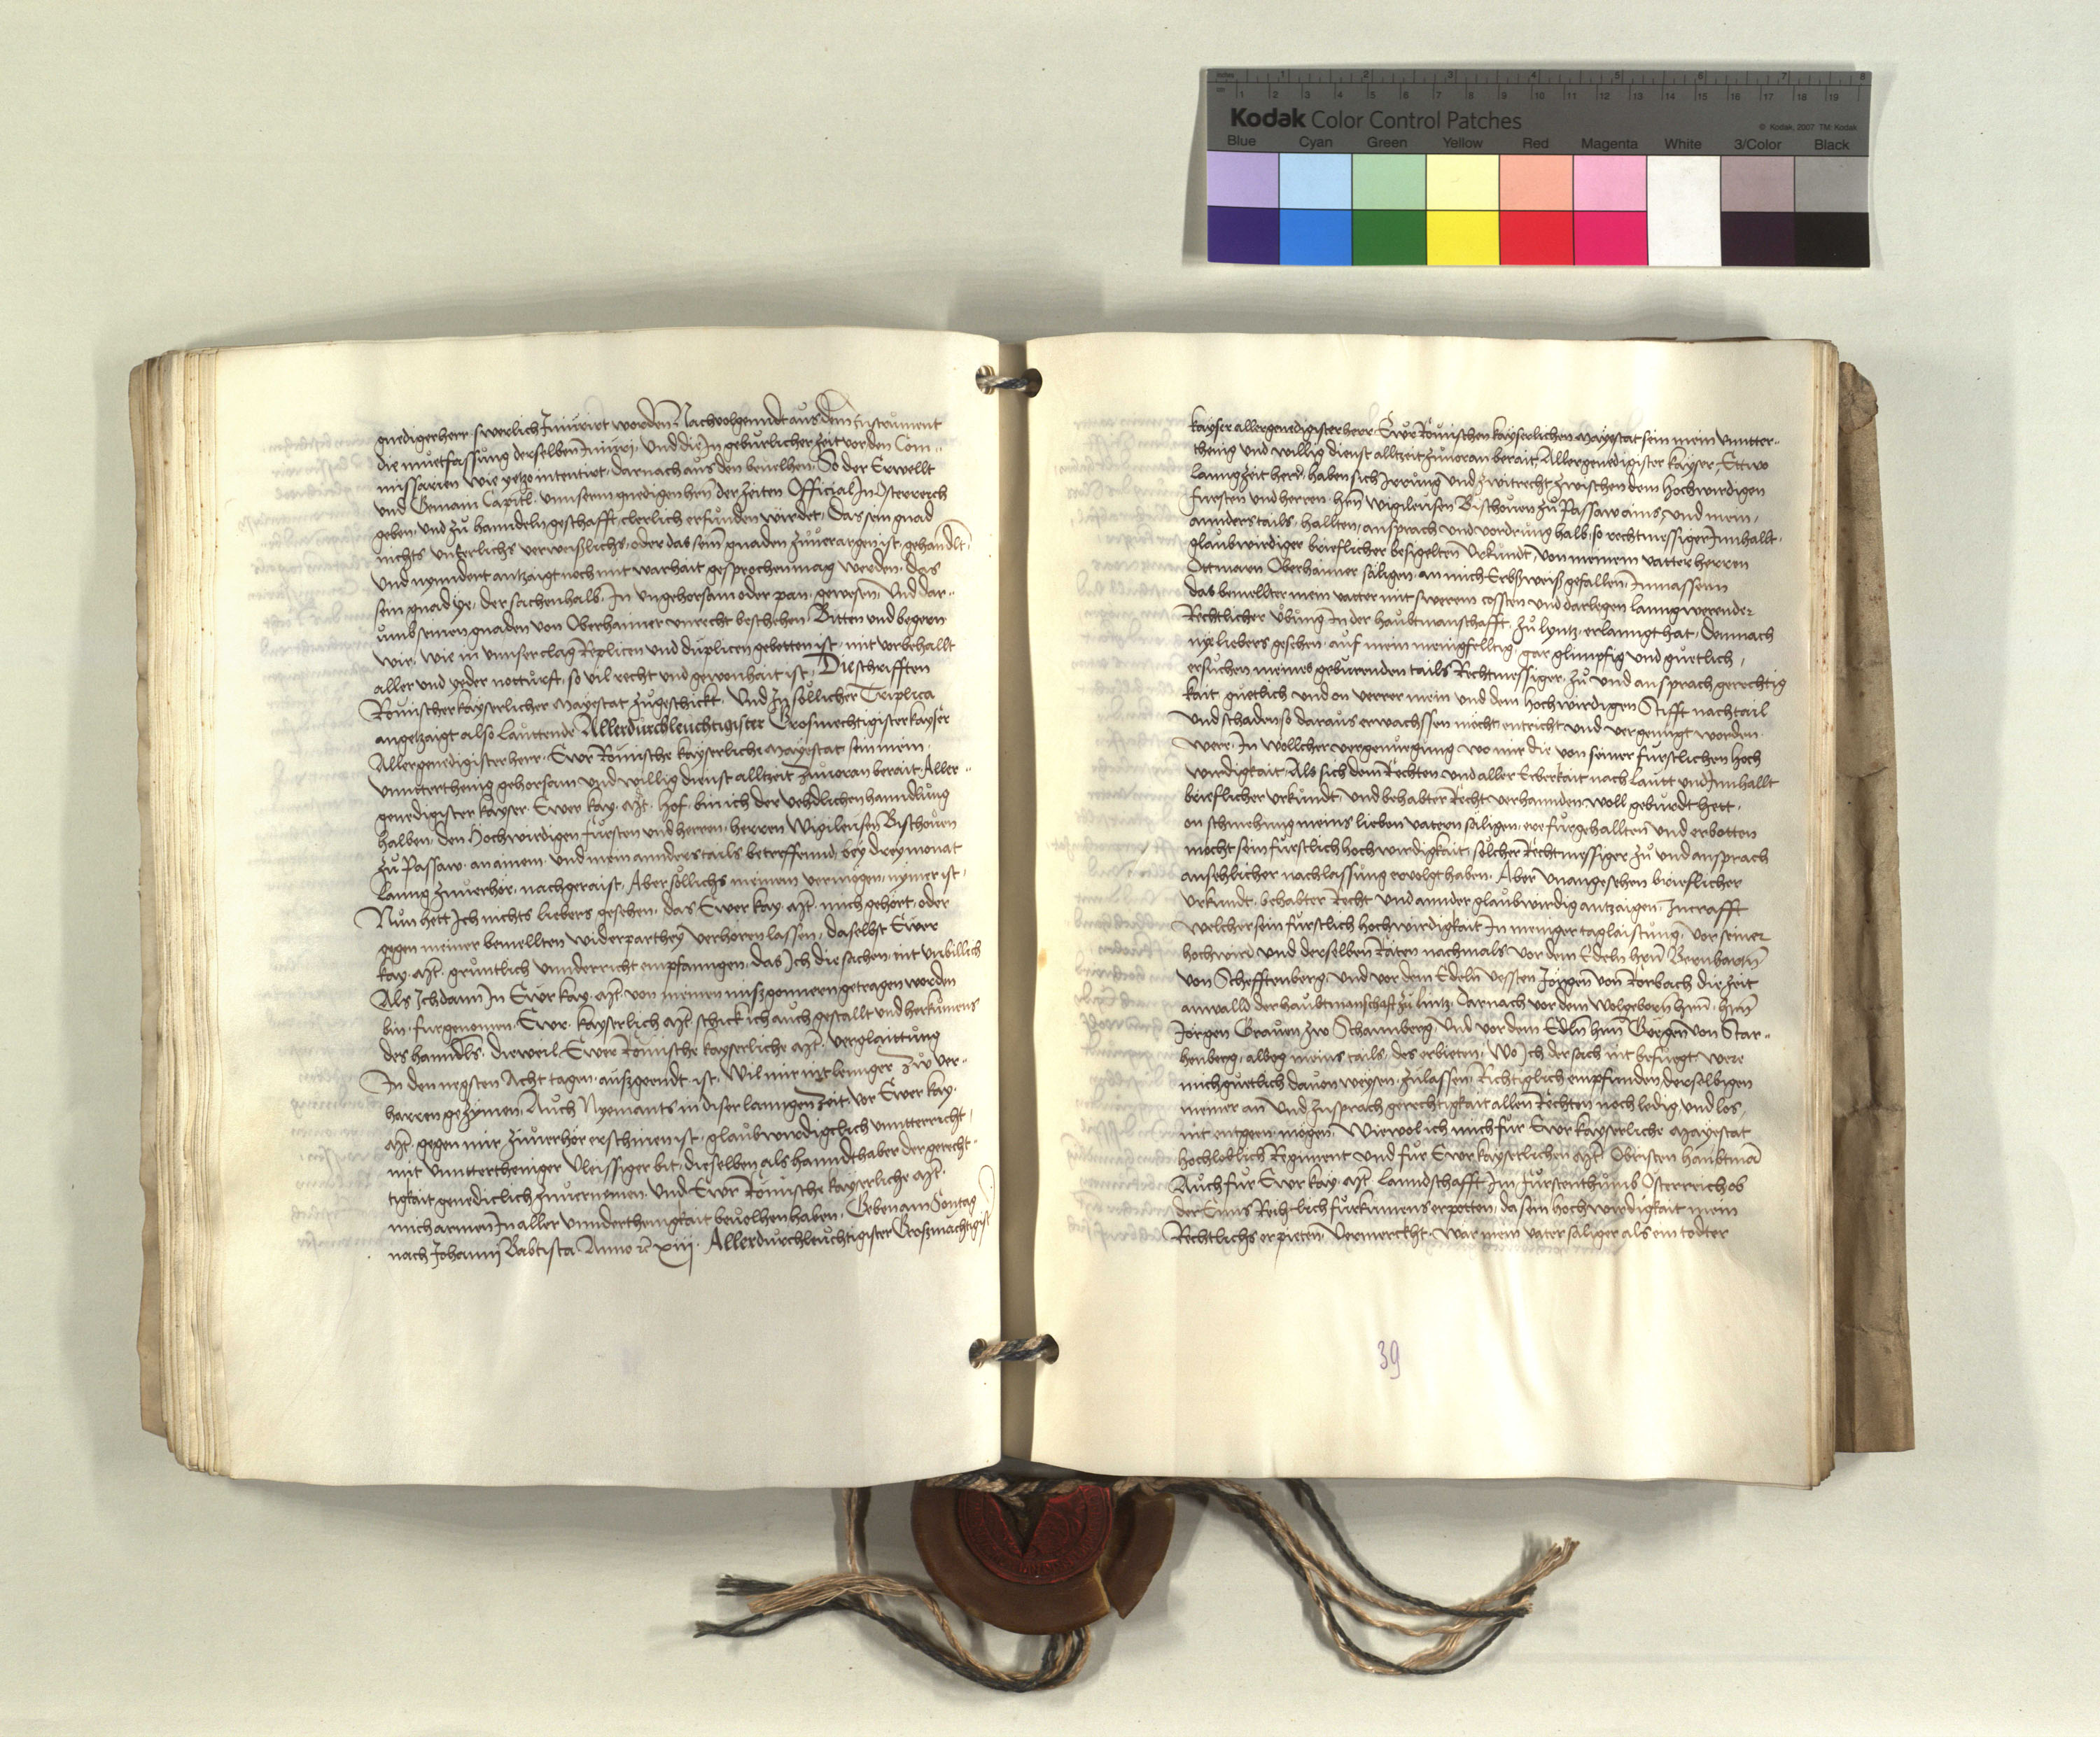 inches 1 2 3 4 5 6 7 8
cm 1 2 3 4 5 6 7 8 9 10 11 12 13 14 15 16 17 18 19
Kodak Color Control Patches
© Kodak, 2007 TM: Kodak
Blue Cyan Green Yellow Red Magenta White 3/Color Black
gnediger herr swerlich Iniurirt worden Nachvolgenndt aus dem Instrument
die muetfassung derselben Iniuri, Und die In geburlicher zeit vor den Com-
missarien wie yetzo intentirt, darnach aus den bevelhen, So der Erwellt
und Gemain Capitl, unnserm gnedigen hrn der zeiten Official In Österreich
geben, und zu hanndeln geschafft, clerlich erfunden wirdet, Das sein gnad
nichts unerlichs verweißlichs, oder das sein gnaden zuverargen ist, gehandlt,
Und nynndert antzaigt noch mit warhait gesprochen mag werden, das
sein gnad ye, der sachen halb, In ungehorsam oder pan, gewesen, Und dar-
umb seinen gnaden von Oberhaimer unrecht beschehen, Bitten und begern
wir, wie in unnser clag Replicen und duplicen gebetten ist, mit vorbehallt
aller und yeder notturft, so vil recht und gewonhait ist, Die schrifften
Romischer kayserlicher Mayestat zugeschickt, Und In sollicher Triplica
angetzaigt also lauttende Allerdurchleuchtigister Grosmechtigister kayser
Allergenedigister herr, Ewr Romische kayserliche Mayestat sein mein
unnterthenig gehorsam und willig dienst alltzeit zuvoran berait, Aller-
genedigister kayser, Ewer kay. Mt. hof, bin ich der vehdlichen hanndlung
halben, den Hochwirdigen fursten und herren, herren Wigileusen Bischoven
zu Passaw, an ainem, und mein annders tails betreffennd, bey drey monat
lanng zuverhör, nachgeraist, Aber sollichs meinem vermogen, nymer ist,
Nun hett Ich nichts liebers gesehen, das Ewer kay. Mt. mich gehört, oder
gegen meiner bemellten widerparthey verhoren lassen, daselbst Ewer
kay. Mt. gruntlich unnderricht empfanngen, das Ich die sachen, nit unbillich
Als Ich dann In Ewr kay. Mt. von meinen mißgonnern, getragen worden
bin, furgenomen, Ewr. kayserlich Mt. schick ich auch gestallt und herkumens
des hanndls, dieweil Ewer Romische kayserliche Mt. verglaittung
In den negsten Acht tagen, außgeendt ist, Wil mir nit lennger zu ver-
harren gezymen, Auch Nyemants in diser lanngen zeit, vor Ewer kay.
Mt. gegen mir, zuverhör erschinen ist, glaubwirdigclich unnterricht,
mit unntertheniger vleissiger bit, dieselben als hanndthaber der gerecht-
tigkait genediclich zuvernemen, und Ewr Romische kayserliche Mt.
mich armen In aller unnderthenigkait bevolhen haben, Geben am Sontag
nach Johannis Babtista Anno ec xiii. Allerdurchleuchtigister Großmächtigist
kayser allergenedigister herr, Ewr Romischen kayserlichen Mayestat sein mein unntter-
thenig und willig dienst alltzeit zuvoran berait, Allergenedigister kayser, Ettwo
lanng zeit herr, haben sich Irrung und zwitrecht zwischen dem hochwirdigen
fursten und herren, hrn wigileusen Bischoven zu Passaw ains, und mein,
annders tails, hallten, ansprach und vordrung halb, so rechtmessiger Innhallt,
glaubwirdiger brieflicher besigelten Urkundt, von meinem vatter herren
Ottmarn Oberhaimer säligen, an mich Erbsweiß gefallen, Inmassenn
das bemellter mein vatter mit swerem cossten und darlegen lanng werender
Rechtlicher ubung In der haubtmanschafft, zu lynntz, erlanngt hat, demnach
nye liebers gesehen, auf mein menigfelltig, gar glimpfig und guetlich,
ersuchen meines geburenden tails Rechtmessiger, zu und ansprach gerechtig
kait, guetlich und on verrer mein und dem hochwirdigen Stifft nachtail
und schaden so daraus erwachssen mocht, entricht und vergenugt worden
were, In wollcher vergenuegung wo mir die von seiner furstlichen hoch
wirdigkait Als sich dem Rechten und aller Erberkait nach lautt und Innhallt
brieflicher urkundt, und behabter Recht verhannden woll geburdt hett,
on schmehung meins lieben vatern säligen, ere furgehallten und erbotten
mocht sein furstlich hochwirdigkait, solcher Rechtmessiger zu und ansprach
ansehlicher nachlassung ervolgt haben, Aber unangesehen brieflicher
Urkundt, behabter Recht und annder glaubwirdig antzaigen, In crafft
welcher sein furstlich hochwirdigkait In meniger taglaistung, vor seiner
hochwird und derselben Räten nachmals vor dem Edeln hrn Bernharten
von Schefftenberg, und vor dem Edeln vessten Jörgen von Rorbach die zeit
anwalld der haubtmanschaft zu lintz, Darnach vor dem Wolgeborn hrn, hrn
Jorgen Graven zw Schaunberg, Und vor dem Edln hrn Görgen von Star-
henberg, albeg meins tails, des erbieten, Wo Ich der sach nit befuegt were
mich guetlich davon weysen, zulassen, Richtiglich empfunden, derselbigen
meiner an und zusprach gerechtigkait allen Rechten noch ledig, und los,
nit entgeen mögen, Wiewol ich mich fur Ewr kayserliche Mayestat
hochloblich Regiment und fur Ewr kayserlichen Mt. Obristen haubtman
Auch fur Ewr kay. Mt. lanndschafft Im furstenthumb Österreich ob
der Enns Rechtlich furkumens erpotten, da sein hochwirdigkait mein
Rechtlichs erpieten, Vermerckht, war mein vater säliger als ein todter
39